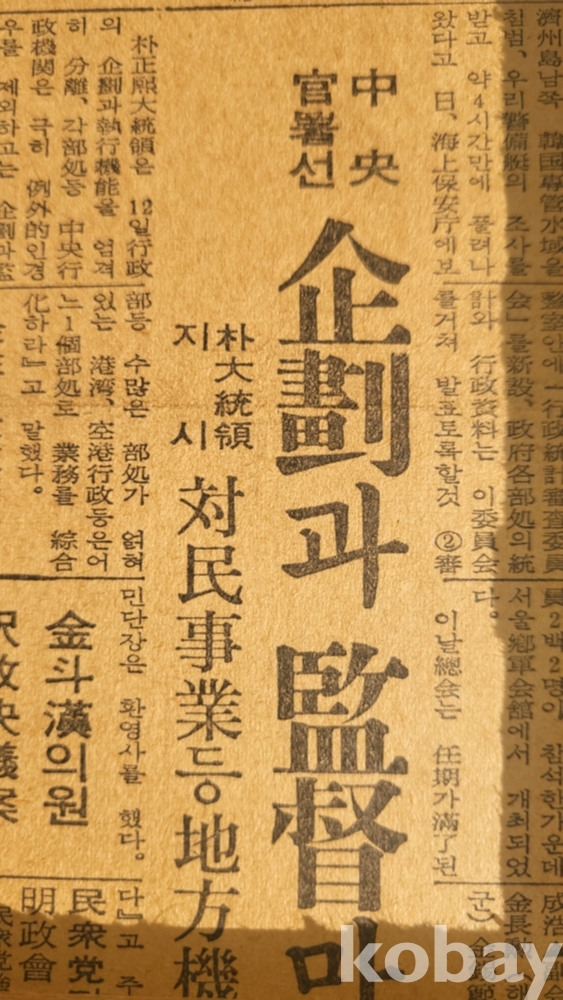 濟州島남쪽 韓国専管水域을
침범, 우리警備艇의 조사를
받고 약4시간만에 풀려나
왔다고 日、海上保安庁에보
整室안에「行政統計審査委員
会」를新設、政府各部処의 統
計와 行政資料는 이委員会
를거쳐 발표토록할것 ②審
員2백2명이 참석한가운데
서울鄕軍会館에서 개최되었
다。
이날總会는 任期가滿了된
中央
官署선
企劃과 監督마
朴大統領
지시
対民事業등 地方機
朴正熙大統領은 12일行政
의 企劃과執行機能을 엄격
히 分離、各部処등 中央行
政機関은 극히 例外的인경
우를 제외하고는 企劃과監
部등 수많은 部処가 얽혀
있는 港湾、空港行政등은어
느1個部処로 業務를 綜合
化하라』고 말했다。
민단장은 환영사를 했다。
金斗漢의원
釈放決議案
다』고 주
民衆党
明政會
民衆党
kobay